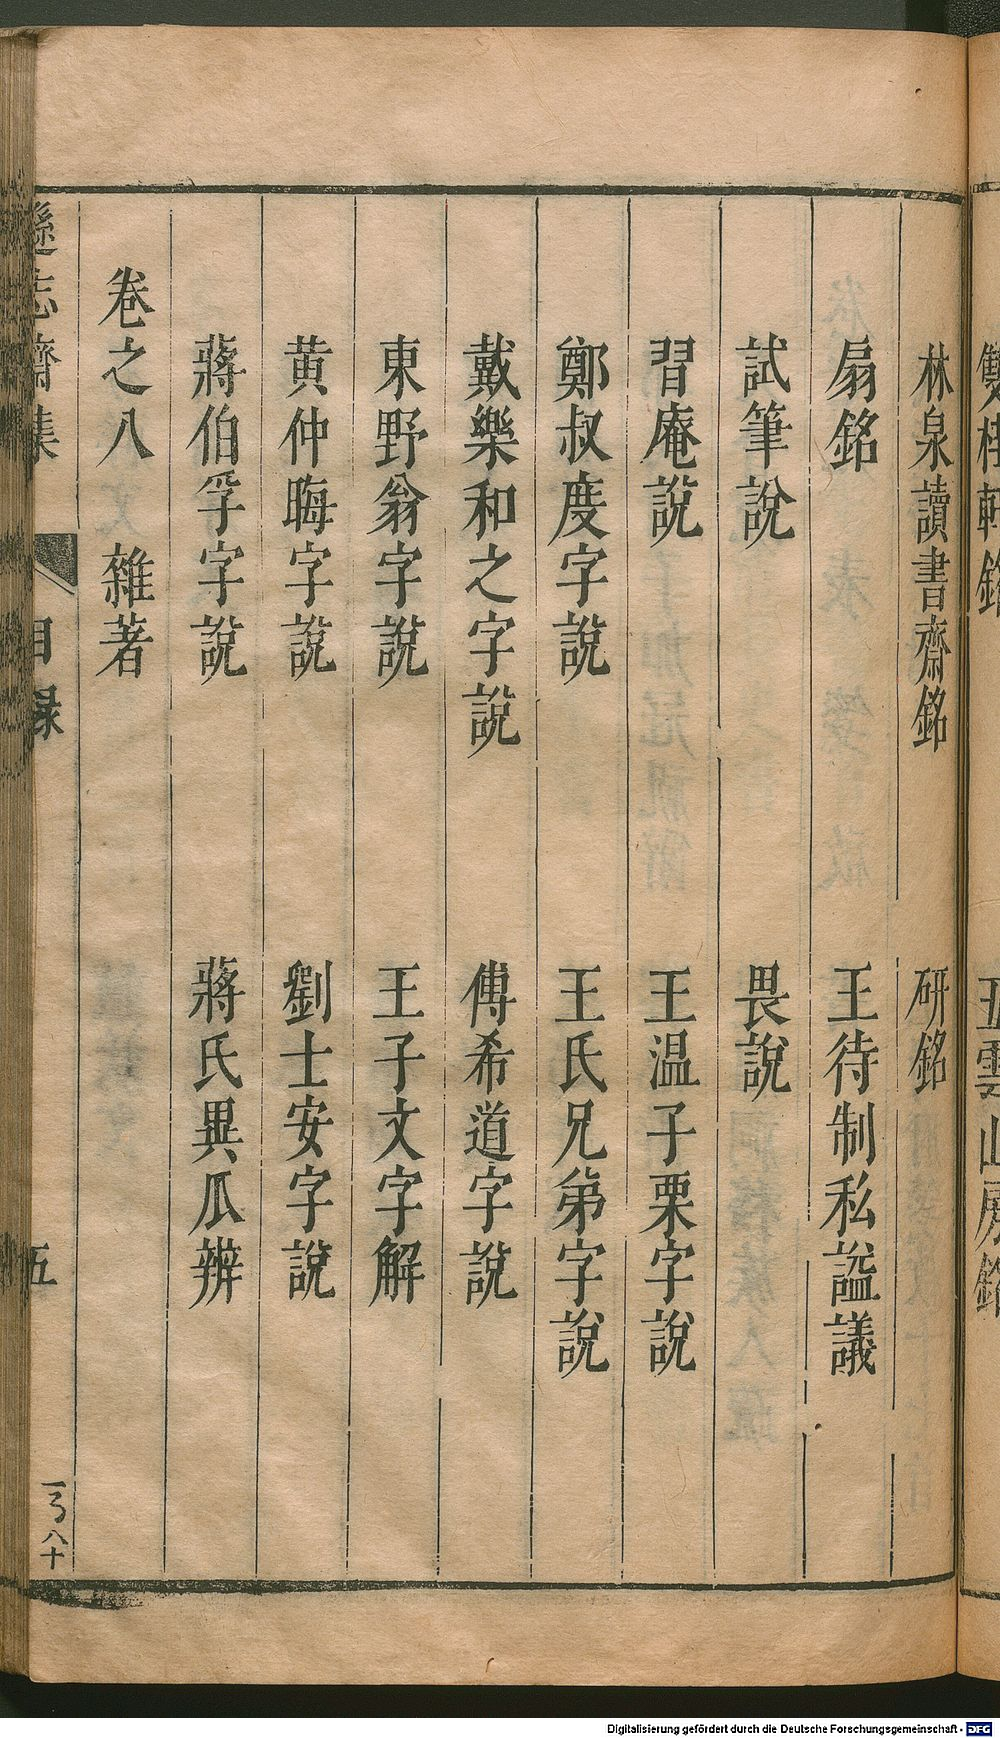 雙桂軒銘
五雲山房銘
林泉讀書齋銘
研銘
扇銘
王待制私謚議
試筆說
畏說
習庵說
王温子栗字說
鄭叔度字說
王氏兄弟字說
戴樂和之字說
傅希道字說
東野翁字說
王子文字解
黄仲晦字說
劉士安字說
蔣伯孚字說
蔣氏異瓜辨
卷之八 雜著
遜志齋集 目録 五
Digitalisierung gefördert durch die Deutsche Forschungsgemeinschaft - DFG